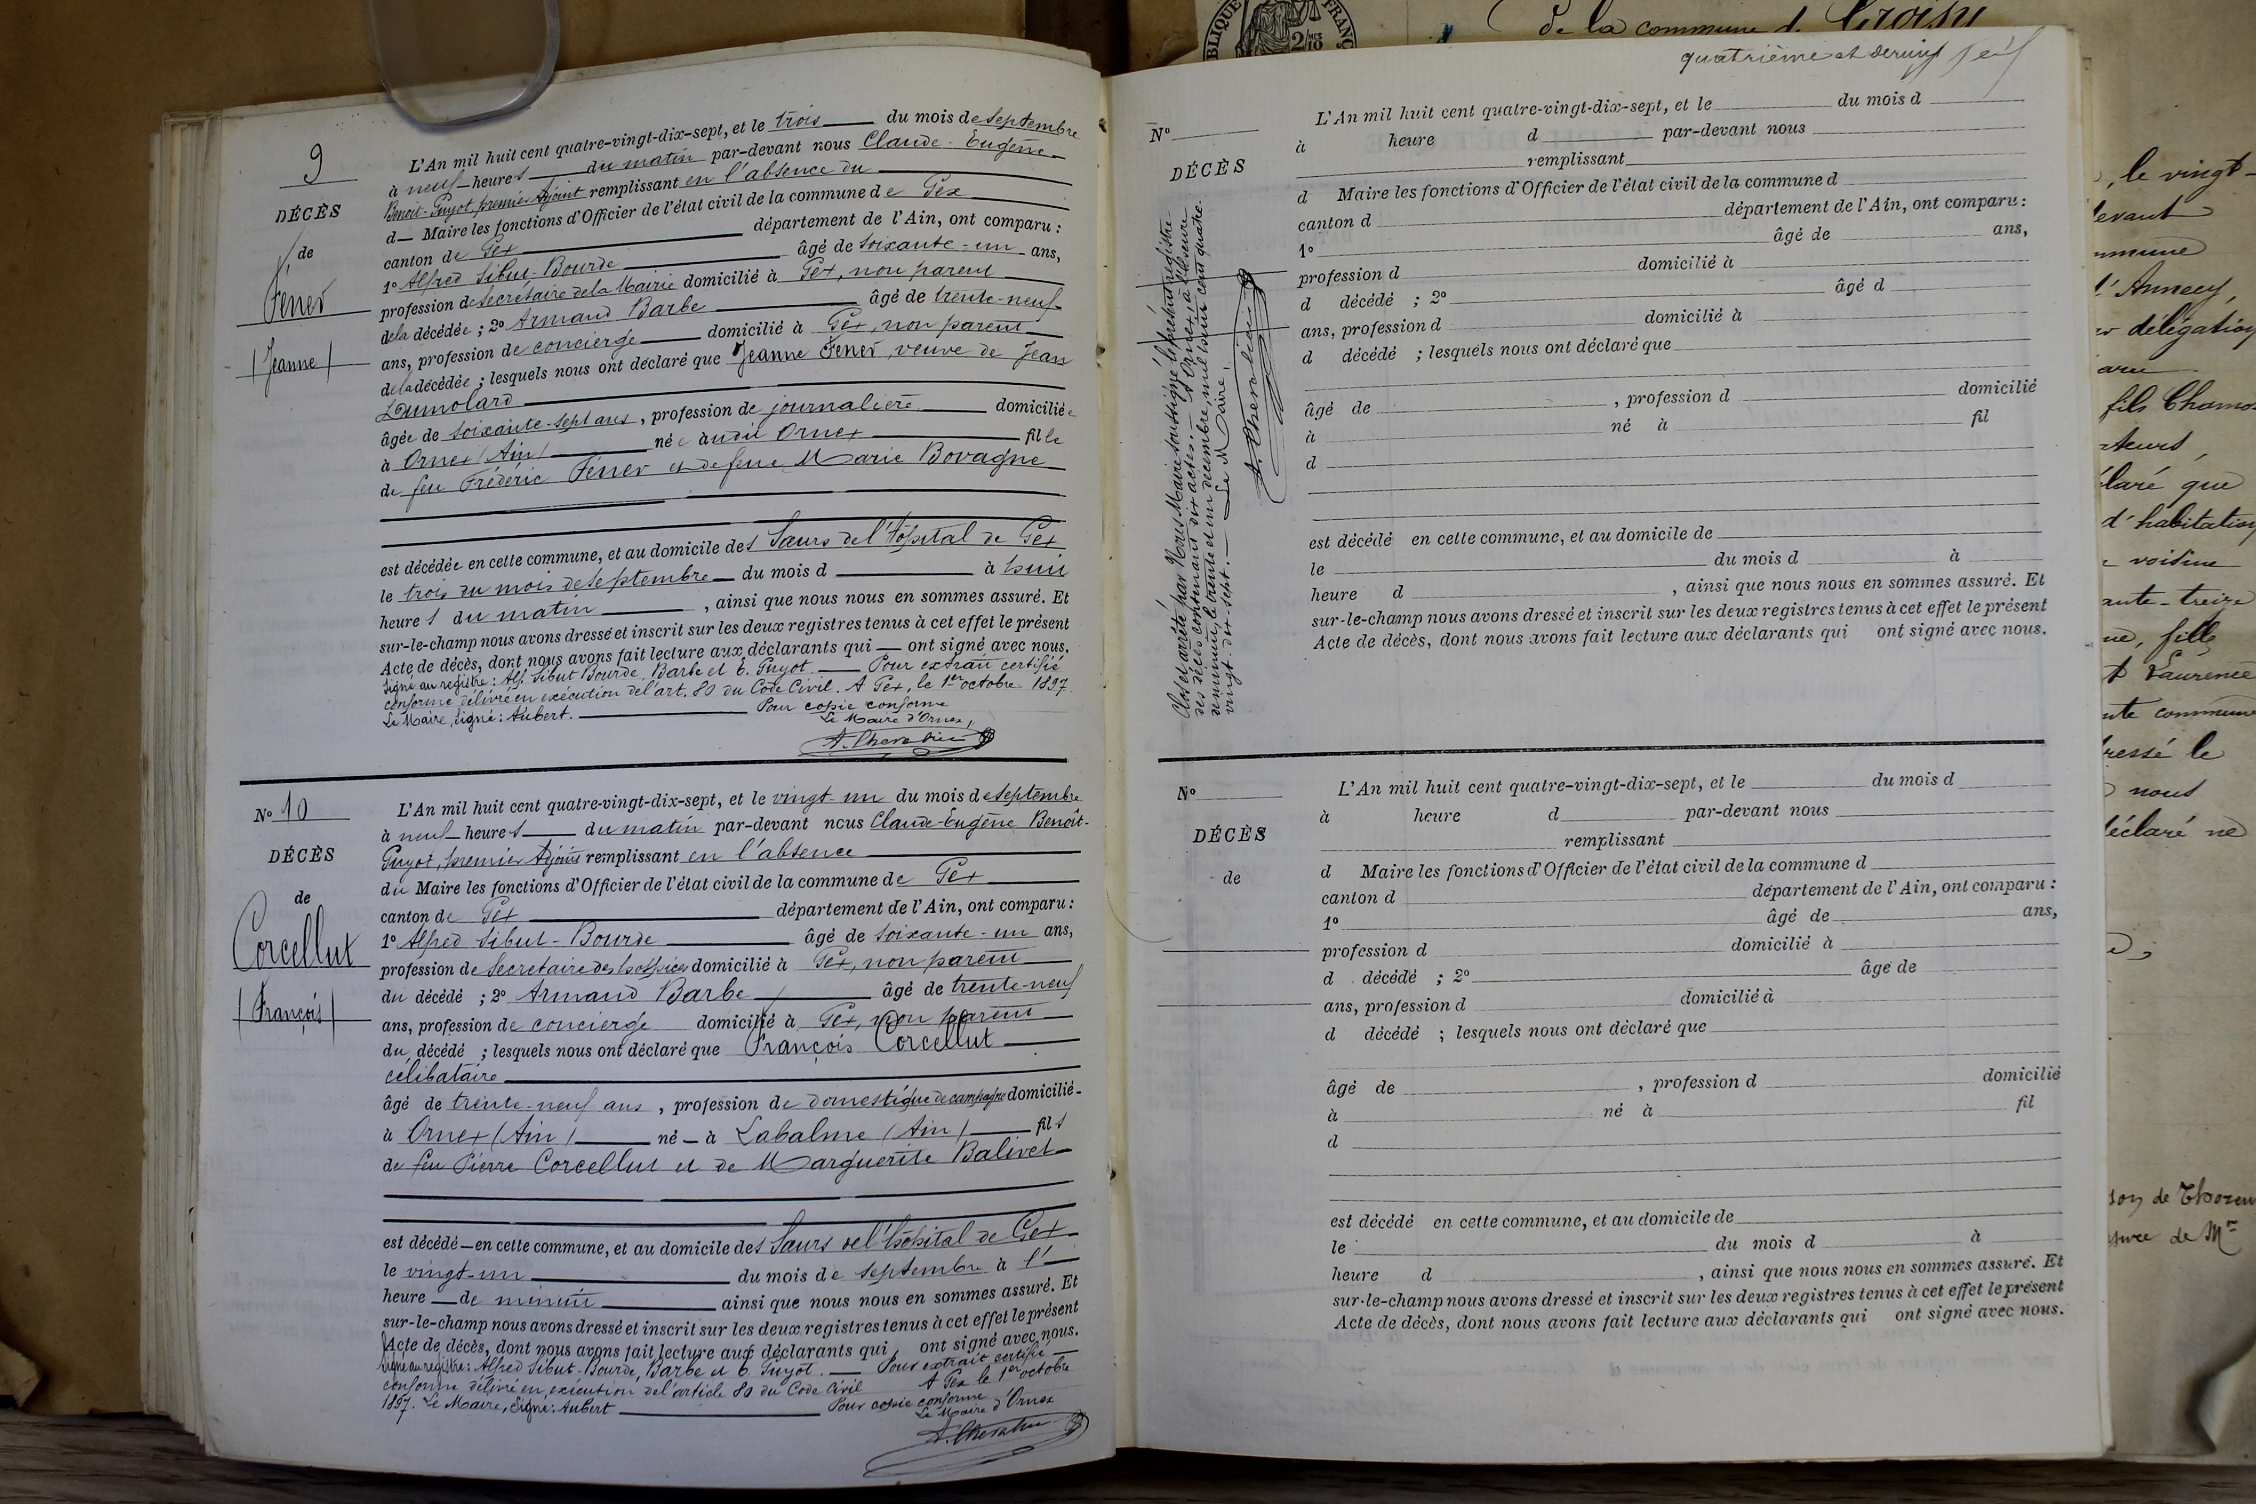 9
DÉCÈS
de
Fener
(Jeanne)
L'An mil huit cent quatre-vingt-dix-sept, et le trois du mois de septembre
à neuf heures du matin par-devant nous Claude-Eugène
Benoit-Guyot, premier Adjoint remplissant en l'absence du
d Maire les fonctions d'Officier de l'état civil de la commune de Gex
canton de Gex département de l'Ain, ont comparu :
1º Alfred Sibut-Bourde âgé de soixante-un ans,
profession de Secrétaire de la Mairie domicilié à Gex, non parent
de la décédée ; 2º Armand Barbe âgé de trente-neuf
ans, profession de concierge domicilié à Gex, non parent
de la décédée ; lesquels nous ont déclaré que Jeanne Fener, veuve de Jean
Dumolard
âgée de soixante-sept ans, profession de journalière domiciliée
à Ornex (Ain) née audit Ornex fille
de feu Frédéric Féner et de feue Marie Bovagne
est décédée en cette commune, et au domicile des Sœurs de l'Hôpital de Gex
le trois du mois de septembre du mois d à huit
heures du matin , ainsi que nous nous en sommes assuré. Et
sur-le-champ nous avons dressé et inscrit sur les deux registres tenus à cet effet le présent
Acte de décès, dont nous avons fait lecture aux déclarants qui ont signé avec nous.
Signé au registre : Alf. Sibut Bourde, Barbe et E. Guyot. Pour extrait certifié
conforme délivré en exécution de l'art. 80 du Code Civil. A Gex, le 1er octobre 1897
Le Maire, Signé : Aubert. Pour copie conforme
Le Maire d'Ornex,
Nº 10
DÉCÈS
de
Corcellut
(François)
L'An mil huit cent quatre-vingt-dix-sept, et le vingt-un du mois de septembre
à neuf heures du matin par-devant nous Claude-Eugène Benoit-
Guyot, premier Adjoint remplissant en l'absence
du Maire les fonctions d'Officier de l'état civil de la commune de Gex
canton de Gex département de l'Ain, ont comparu :
1º Alfred Sibut-Bourde âgé de soixante-un ans,
profession de Secrétaire des hospices domicilié à Gex, non parent
du décédé ; 2º Armand Barbe âgé de trente-neuf
ans, profession de concierge domicilié à Gex, non parent
du décédé ; lesquels nous ont déclaré que François Corcellut
célibataire
âgé de trente-neuf ans, profession de domestique de campagne domicilié
à Ornex (Ain) né à Labalme (Ain) fils
de feu Pierre Corcellut et de Marguerite Balivet
est décédé en cette commune, et au domicile des Sœurs de l'hôpital de Gex
le vingt-un du mois de septembre à 1
heure de minuit ainsi que nous nous en sommes assuré. Et
sur-le-champ nous avons dressé et inscrit sur les deux registres tenus à cet effet le présent
Acte de décès, dont nous avons fait lecture aux déclarants qui ont signé avec nous.
Signé au registre : Alfred Sibut-Bourde, Barbe et E. Guyot. Pour extrait certifié
conforme délivré en exécution de l'article 80 du Code Civil A Gex le 1er octobre
1897. Le Maire, Signé : Aubert Pour copie conforme
Le Maire d'Ornex
quatrième et dernier
Nº
DÉCÈS
Clos et arrêté par Nous Maire soussigné le présent registre
des décès contenant dix actes. A Ornex, à l'heure
de minuit, le trente et un décembre, mil huit cent quatre-
vingt-dix-sept. Le Maire,
L'An mil huit cent quatre-vingt-dix-sept, et le du mois d
à heure d par-devant nous
remplissant
d Maire les fonctions d'Officier de l'état civil de la commune d
canton d département de l'Ain, ont comparu :
1º âgé de ans,
profession d domicilié à
d décédé ; 2º âgé d
ans, profession d domicilié à
d décédé ; lesquels nous ont déclaré que
âgé de , profession d domicilié
à né à fil
d
est décédé en cette commune, et au domicile de
le du mois d à
heure d , ainsi que nous nous en sommes assuré. Et
sur-le-champ nous avons dressé et inscrit sur les deux registres tenus à cet effet le présent
Acte de décès, dont nous avons fait lecture aux déclarants qui ont signé avec nous.
Nº
DÉCÈS
de
L'An mil huit cent quatre-vingt-dix-sept, et le du mois d
à heure d par-devant nous
remplissant
d Maire les fonctions d'Officier de l'état civil de la commune d
canton d département de l'Ain, ont comparu :
1º âgé de ans,
profession d domicilié à
d décédé ; 2º âgé de
ans, profession d domicilié à
d décédé ; lesquels nous ont déclaré que
âgé de , profession d domicilié
à né à fil
d
est décédé en cette commune, et au domicile de
le du mois d à
heure d , ainsi que nous nous en sommes assuré. Et
sur-le-champ nous avons dressé et inscrit sur les deux registres tenus à cet effet le présent
Acte de décès, dont nous avons fait lecture aux déclarants qui ont signé avec nous.
de la commune de Croisy
, le vingt-
d'Annecy,
délégation
fils
que
d'habitation
voisine
fille
Laurence
commune
le
nous
déclaré ne
de
de Mr